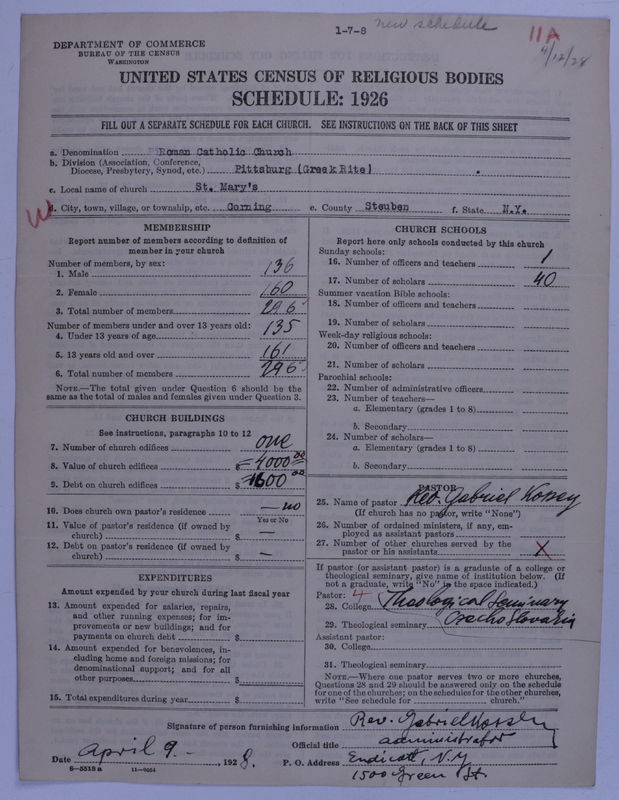 1-7-8 new schedule 11A
4/12/28
DEPARTMENT OF COMMERCE
BUREAU OF THE CENSUS
WASHINGTON
UNITED STATES CENSUS OF RELIGIOUS BODIES
SCHEDULE: 1926
FILL OUT A SEPARATE SCHEDULE FOR EACH CHURCH. SEE INSTRUCTIONS ON THE BACK OF THIS SHEET
a. Denomination Roman Catholic Church
b. Division (Association, Conference, Diocese, Presbytery, Synod, etc.) Pittsburg (Greek Rite)
c. Local name of church St. Mary's
d. City, town, village, or township, etc. Corning e. County Steuben f. State N.Y.
MEMBERSHIP
Report number of members according to definition of
member in your church
Number of members, by sex:
1. Male 136
2. Female 160
3. Total number of members 296
Number of members under and over 13 years old:
4. Under 13 years of age 135
5. 13 years old and over 161
6. Total number of members 296
NOTE.—The total given under Question 6 should be the
same as the total of males and females given under Question 3.
CHURCH BUILDINGS
See instructions, paragraphs 10 to 12
7. Number of church edifices one
8. Value of church edifices $ 4000 00
9. Debt on church edifices $ 1600 00
10. Does church own pastor's residence — no
Yes or No
11. Value of pastor's residence (if owned by
church) $ —
12. Debt on pastor's residence (if owned by
church) $ —
EXPENDITURES
Amount expended by your church during last fiscal year
13. Amount expended for salaries, repairs,
and other running expenses; for im-
provements or new buildings; and for
payments on church debt $
14. Amount expended for benevolences, in-
cluding home and foreign missions; for
denominational support; and for all
other purposes $
15. Total expenditures during year $
CHURCH SCHOOLS
Report here only schools conducted by this church
Sunday schools:
16. Number of officers and teachers 1
17. Number of scholars 40
Summer vacation Bible schools:
18. Number of officers and teachers
19. Number of scholars
Week-day religious schools:
20. Number of officers and teachers
21. Number of scholars
Parochial schools:
22. Number of administrative officers
23. Number of teachers—
a. Elementary (grades 1 to 8)
b. Secondary
24. Number of scholars—
a. Elementary (grades 1 to 8)
b. Secondary
PASTOR
25. Name of pastor Rev. Gabriel
(If church has no pastor, write "None")
26. Number of ordained ministers, if any, em-
ployed as assistant pastors
27. Number of other churches served by the
pastor or his assistants X
If pastor (or assistant pastor) is a graduate of a college or
theological seminary, give name of institution below. (If
not a graduate, write "No" in the space indicated.)
Pastor: 4
28. College Theological Seminary
29. Theological seminary
Assistant pastor:
30. College
31. Theological seminary
NOTE.—Where one pastor serves two or more churches,
Questions 28 and 29 should be answered only on the schedule
for one of the churches; on the schedules for the other churches,
write "See schedule for church."
Signature of person furnishing information Rev. Gabriel
Official title administrator
Date April 9 - 1928. P. O. Address Endicott, N.Y
1500 Green St.
8—5518 a 11—6654